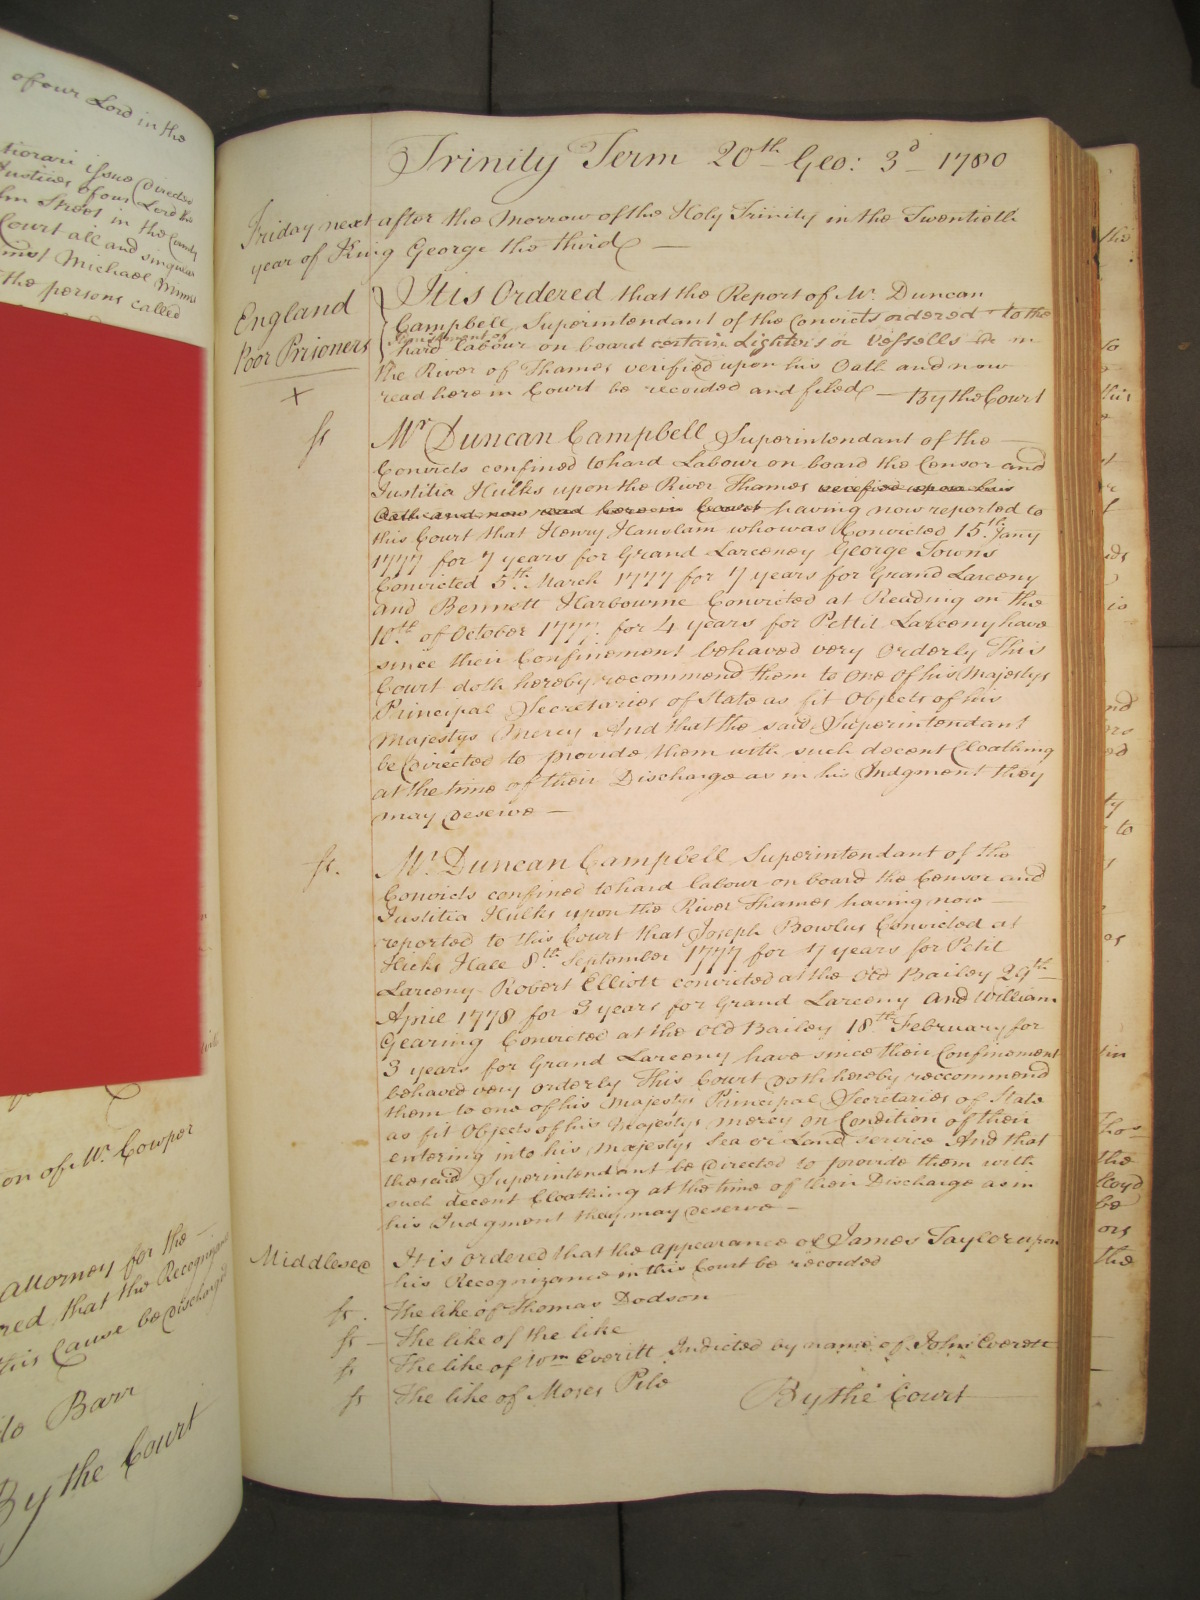 of our Lord in the
tiorari issue Directed
Justices of our Lord the
hn Street in the County
Court all and singular
inst Michael Mims
the persons called
on of Mr. Cowper
attorney for the
red that the Recognizance
this Cause be Discharged
do Barr
By the Court
Trinity Term 20th Geo: 3d 1780
Friday next after the Morrow of the Holy Trinity in the Twentieth
year of King George the third —
England
Poor Prisoners
+
It is Ordered that the Report of Mr. Duncan
Campbell Superintendant of the Convicts ordered to the
hard labour on board certain Lighters or Vessells in
the River of Thames verified upon his Oath and now
read here in Court be recorded and filed — By the Court
fs Mr Duncan Campbell Superintendant of the —
Convicts confined to hard Labour on board the Censor and
Justitia Hulks upon the River Thames verified upon his
Oath and now read here in Court having now reported to
this Court that Henry Hanslam who was Convicted 15th. Jany
1777 for 7 years for Grand Larceney George Towns
Convicted 5th. March 1777 for 7 years for Grand Larceny
and Bennett Harbourne Convicted at Reading on the
10th. of October 1777. for 4 years for Pettit Larceny have
since their Confinement behaved very Orderly This
Court doth hereby recommend them to one of his Majestys
Principal Secretaries of State as fit Objects of his
Majestys Mercy And that the said Superintendant
be Directed to provide them with such decent Cloathing
at the time of their Discharge as in his Judgment they
may deserve —
fs. Mr. Duncan Campbell Superintendant of the
Convicts confined to hard labour on board the Censor and
Justitia Hulks upon the River Thames having now —
reported to this Court that Joseph Bowlus Convicted at
Hicks Hall 8th. September 1777 for 7 years for Petit
Larceny Robert Elliott convicted at the Old Bailey 29th
April 1778 for 3 years for Grand Larceny and William
Gearing Convicted at the Old Bailey 18th. February for
3 years for Grand Larceny have since their Confinement
behaved very orderly This Court doth hereby reccommend
them to one of his Majestys Principal Secretaries of State
as fit Objects of his Majestys mercy on Condition of their
entering into his majestys Sea or Land service And that
the said Superintendant be Directed to provide them with
such decent Cloathing at the time of their Discharge as in
his Judgment they may deserve —
Middlesex It is ordered that the appearance of James Taylor upon
his Recognizance in this Court be recorded
fs. The like of Thomas Dodson
fs — The like of the like
fs The like of Wm Everitt Indicted by name of John Everett
fs The like of Moses Pile By the Court